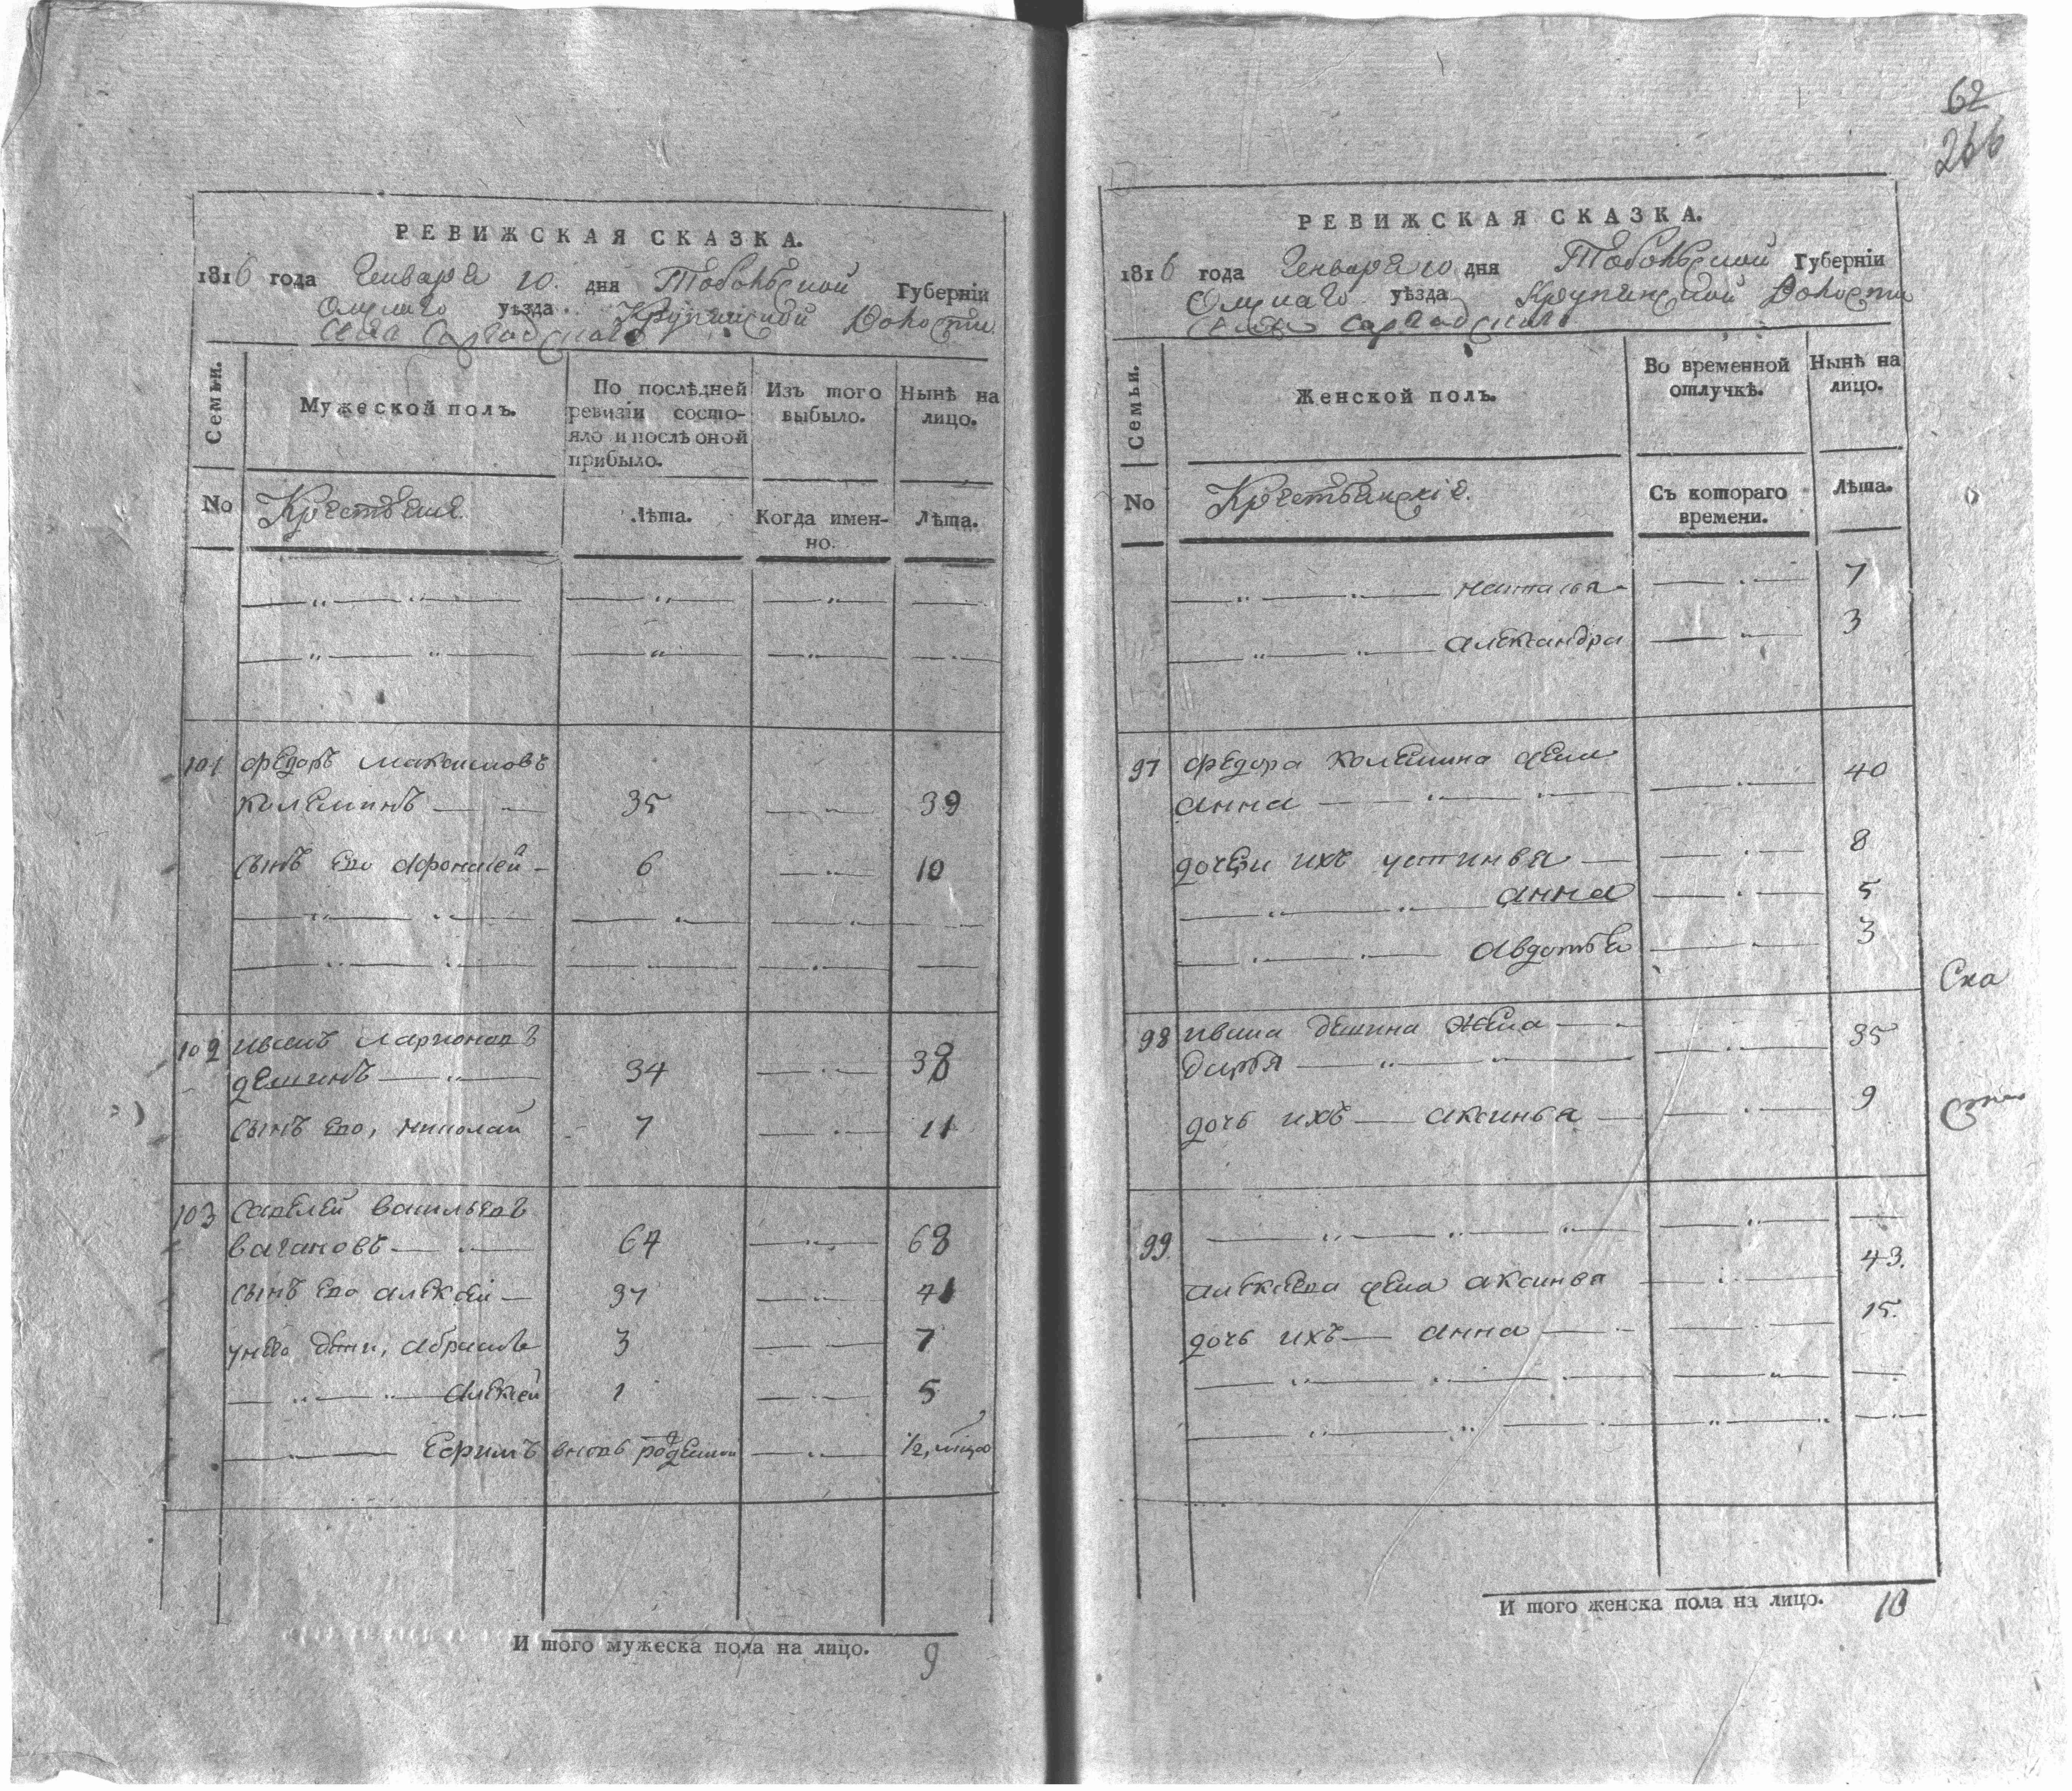 62
266
РЕВИЖСКАЯ СКАЗКА.
1816 года Генваря 10. дня Тобольской Губерніи
Омскаго уѣзда Крупинской Волости
Села
Семьи. Мужеской полъ. По послѣдней ревизіи состо- яло и послѣ оной прибыло. Изъ того выбыло. Нынѣ на лицо.
No Крестьяне. Лѣта. Когда имен- но. Лѣта.
101 Федоръ Максимовъ
Колеминъ 35 39
сынъ Его Афонасей 6 10
102 Иванъ Ларионовъ
Дешинъ 34 38
сынъ Его, Николай 7 11
103 Савелей Васильевъ
Вагановъ 64 68
сынъ Его Алексей 37 41
у него дети, Абрамъ 3 7
Алексей 1 5
Ефимъ вновь рожденной 1/2,
И того мужеска пола на лицо. 9
РЕВИЖСКАЯ СКАЗКА.
1816 года Генваря 10 дня Тобольской Губерніи
Омскаго уѣзда Крупинской Волости
Семьи. Женской полъ. Во временной отлучкѣ. Нынѣ на лицо.
No Крестьянскіе. Съ котораго времени. Лѣта.
Наталья 7
Александра 3
97 Федора Колемина жена
Анна 40
дочери ихъ Устинья 8
Анна 5
Авдотья 3
98 Ивана Дешина жена
Дарья 35
дочь ихъ Аксинья 9
99
Алексея жена Аксинья 43.
дочь ихъ Анна 15.
И того женска пола на лицо. 10
Ска